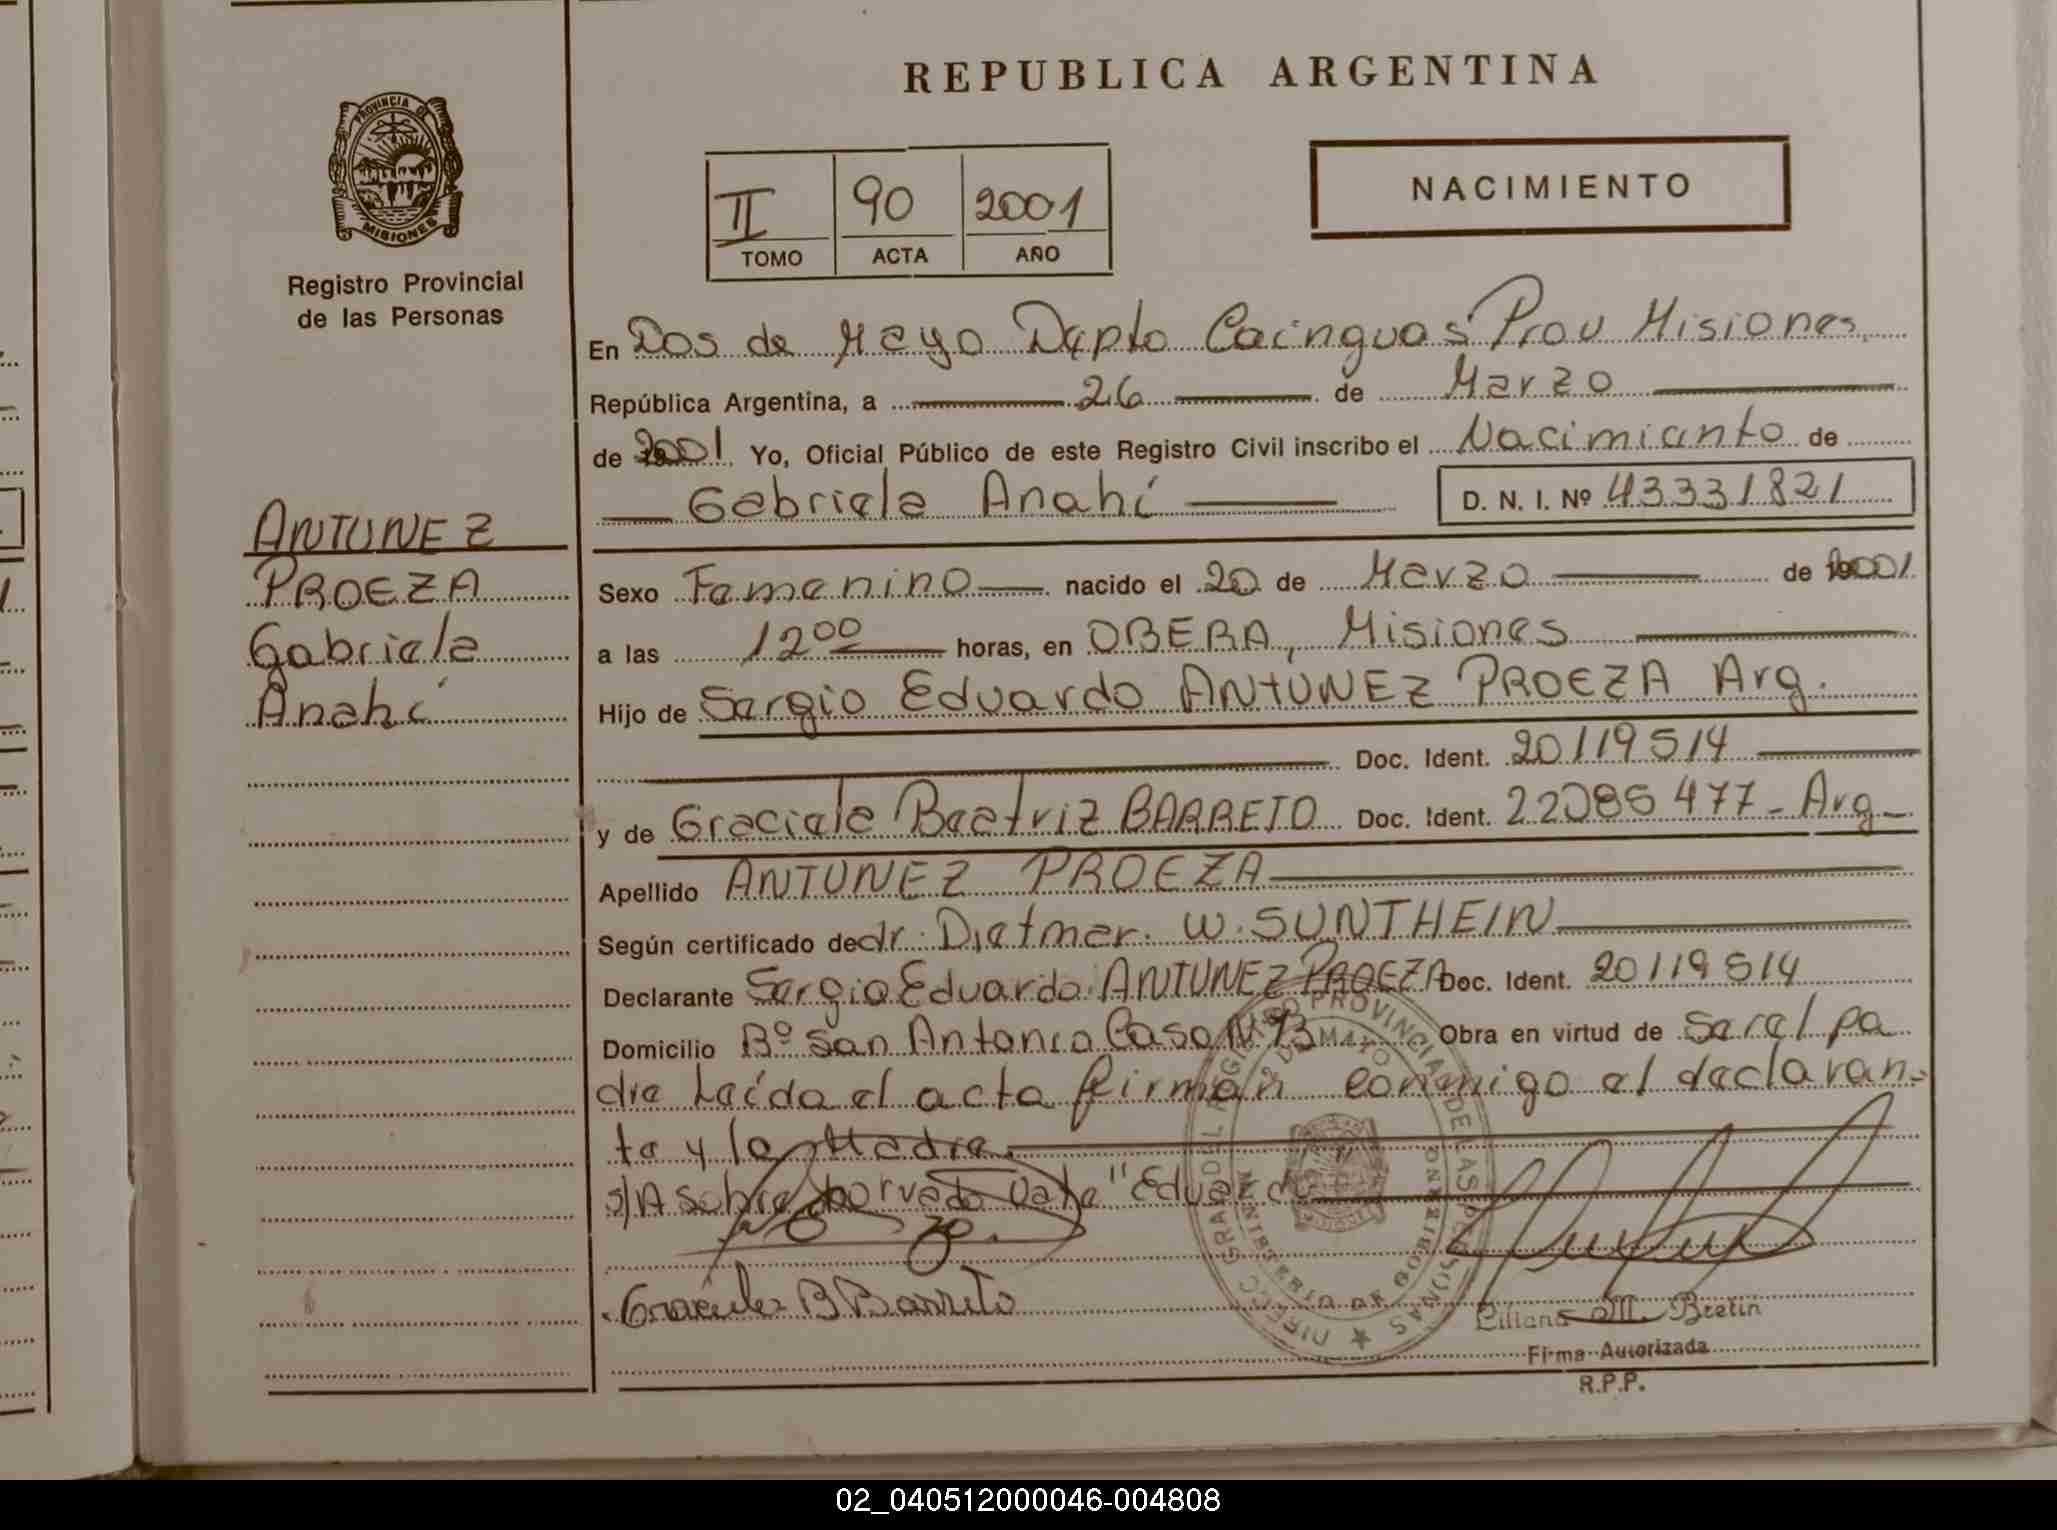 REPUBLICA ARGENTINA
PROVINCIA DE
MISIONES
Registro Provincial
de las Personas
II 90 2001
TOMO ACTA AÑO
NACIMIENTO
En Dos de Mayo Depto Cainguas Prov Misiones
República Argentina, a 26 de Marzo
de 2001 Yo, Oficial Público de este Registro Civil inscribo el Nacimiento de
Gabriela Anahí D. N. I. Nº 43331821
ANTUNEZ
PROEZA
Gabriela
Anahí
Sexo Femenino nacido el 20 de Marzo de 2001
a las 12 00 horas, en OBERA, Misiones
Hijo de Sergio Eduardo ANTUNEZ PROEZA Arg.
Doc. Ident. 20119514
y de Graciela Beatriz BARRETO Doc. Ident. 22085477- Arg-
Apellido ANTUNEZ PROEZA
Según certificado de dr. Dietmer. W. SUNTHEIN
Declarante Sergio Eduardo ANTUNEZ PROEZA Doc. Ident. 20119514
Domicilio Bº San Antonio Casa Nº 13 Obra en virtud de ser el pa
dre Leída el acta firman conmigo el declaran-
te y la Madre.
s/A sobre borrado Vale "Eduardo
Graciela B Barreto
2 DE MAYO
MINISTERIO DE GOBIERNO
Liliana M. Bretin
Firma Autorizada
R.P.P.
02_040512000046-004808